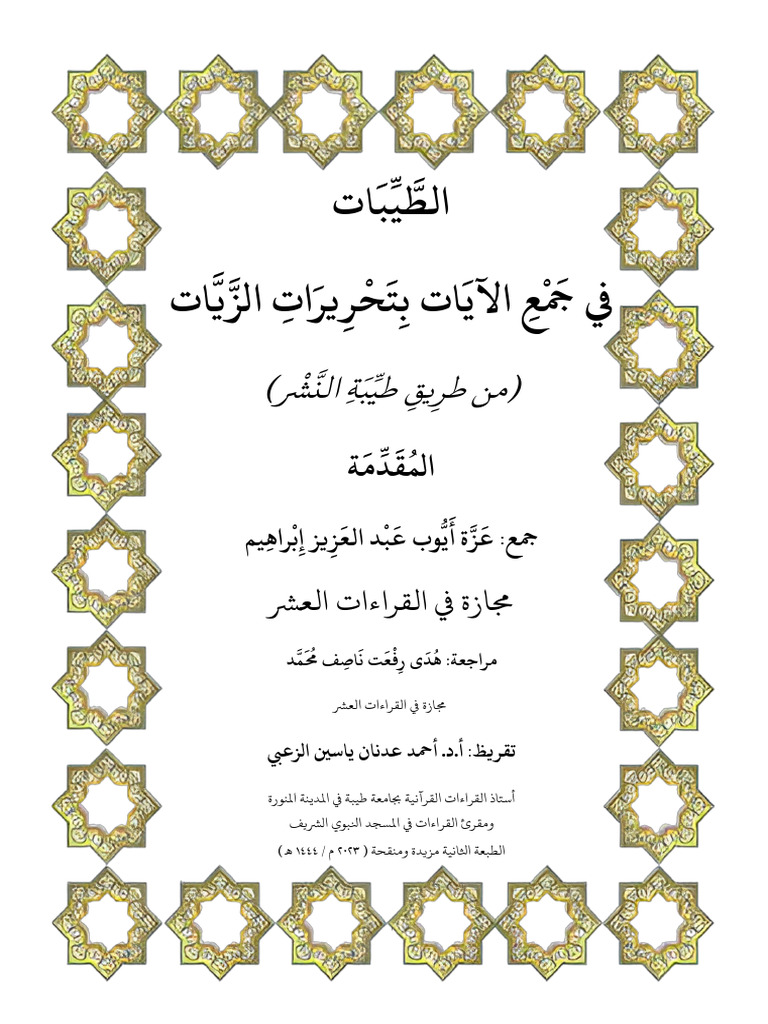 الطَّيِّبَات
في جَمْعِ الآيَات بِتَحْرِيرَاتِ الزَّيَّات
(من طرِيقِ طيِّبَةِ النَّشْر)
المُقَدِّمَة
جمع: عَزَّة أَيُّوب عَبْد العَزِيز إِبْراهِيم
مجازة في القراءات العشر
مراجعة: هُدَى رِفْعَت نَاصِف مُحَمَّد
مجازة في القراءات العشر
تقريظ: أ.د. أحمد عدنان ياسين الزعبي
أستاذ القراءات القرآنية بجامعة طيبة في المدينة المنورة
ومقرئ القراءات في المسجد النبوي الشريف
الطبعة الثانية مزيدة ومنقحة ( ٢٠٢٣ م / ١٤٤٤ هـ )